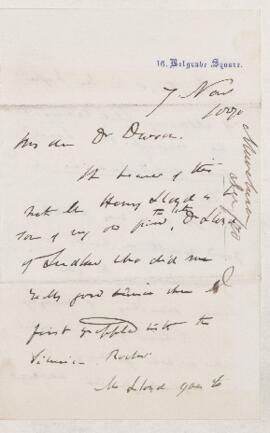 16. Belgrave Square.
7 Nov
My dear Dr
The bearer of this
note Mr Henry Lloyd is
son of my old friend, Dr Lloyd
of Ludlow who did me
really good service when I
first grappled with the
Silurian Rocks
Mr Lloyd goes to